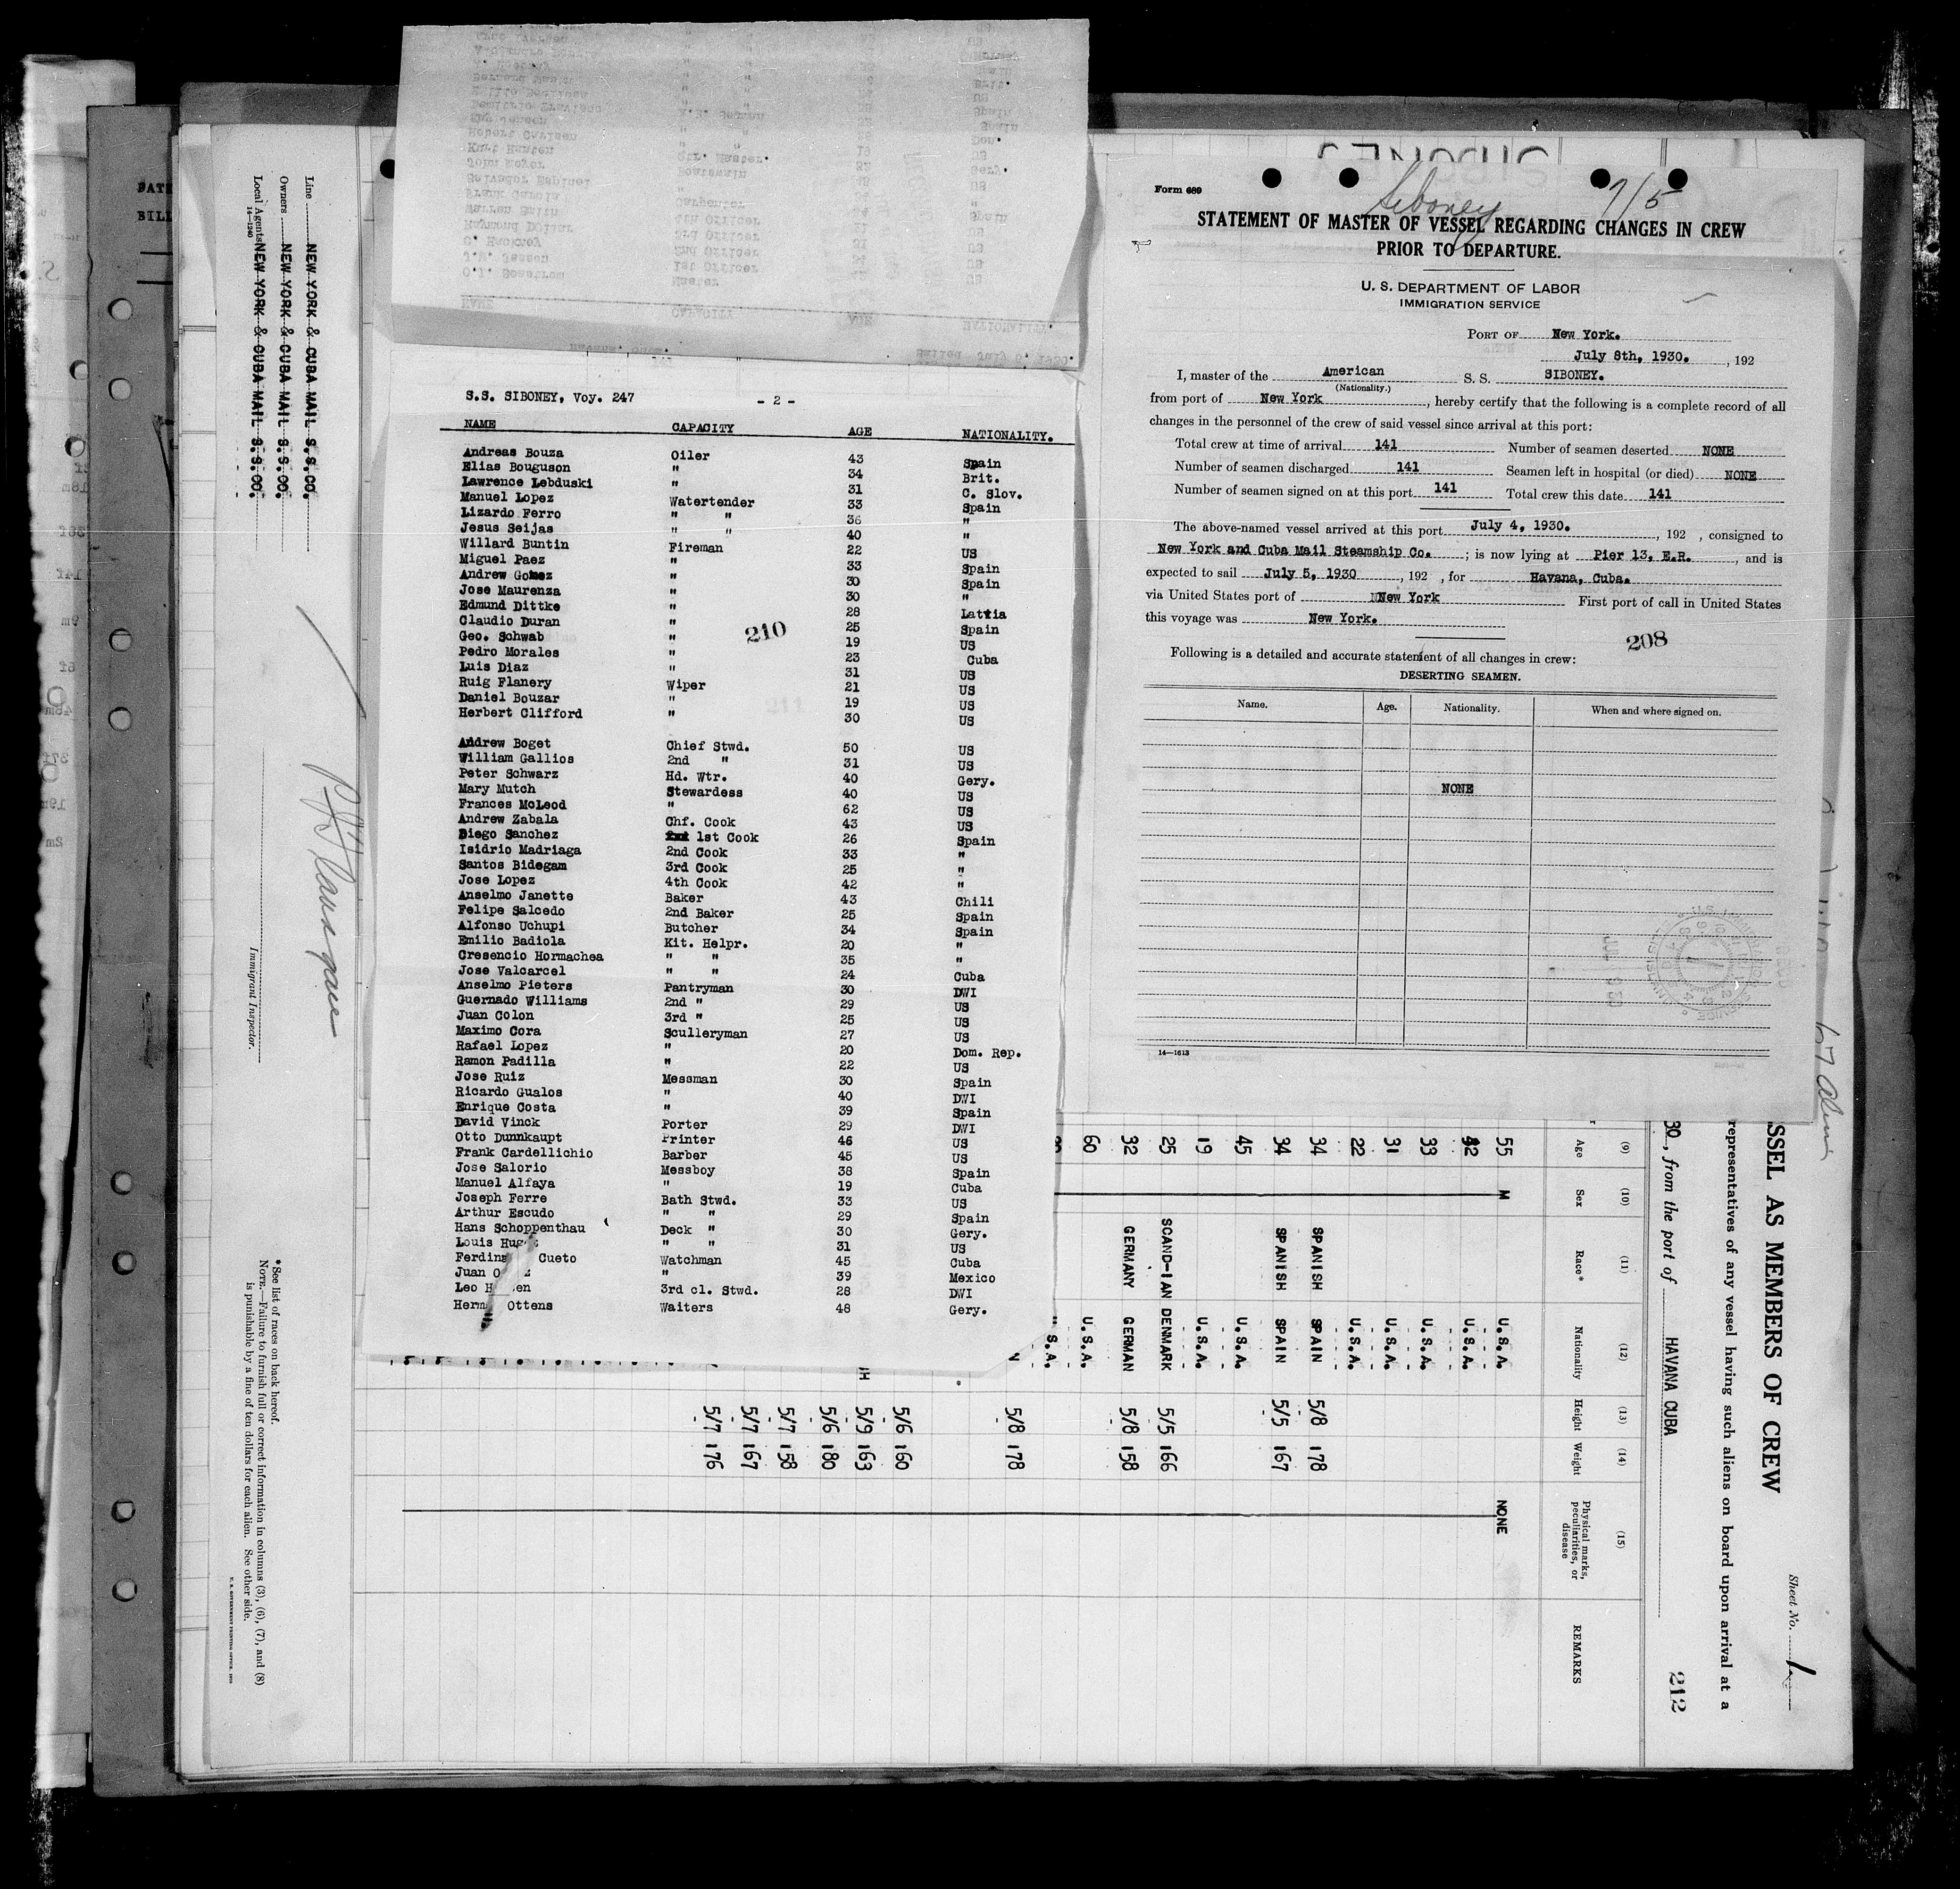 S.S. SIBONEY, Voy. 247 - 2 -
NAME CAPACITY AGE NATIONALITY.
Andreas Bouza Oiler 43 Spain
Elias Bouguson " 34 Brit.
Lawrence Lebduski " 31 C. Slov.
Manuel Lopez Watertender 33 Spain
Lizardo Ferro " " 36 "
Jesus Seijas " " 40 "
Willard Buntin Fireman 22 US
Miguel Paez " 33 Spain
Andrew Gomez " 30 Spain
Jose Maurenza " 30 "
Edmund Dittke " 28 Latvia
Claudio Duran " 25 Spain
Geo. Schwab " 19 US
Pedro Morales " 23 Cuba
Luis Diaz " 31 US
Ruig Flanery Wiper 21 US
Daniel Bouzar " 19 US
Herbert Clifford " 30 US
210
Andrew Boget Chief Stwd. 50 US
William Gallios 2nd " 31 US
Peter Schwarz Hd. Wtr. 40 Gery.
Mary Mutch Stewardess 40 US
Frances McLeod " 62 US
Andrew Zabala Chf. Cook 43 US
Diego Sanchez 1st Cook 26 Spain
Isidrio Madriaga 2nd Cook 33 "
Santos Bidegam 3rd Cook 25 "
Jose Lopez 4th Cook 42 "
Anselmo Janette Baker 43 Chili
Felipe Salcedo 2nd Baker 25 Spain
Alfonso Uchupi Butcher 34 Spain
Emilio Badiola Kit. Helpr. 20 "
Cresencio Hormachea " " 35 "
Jose Valcarcel " " 24 Cuba
Anselmo Pieters Pantryman 30 DWI
Guernado Williams 2nd " 29 US
Juan Colon 3rd " 25 US
Maximo Cora Sculleryman 27 US
Rafael Lopez " 20 Dom. Rep.
Ramon Padilla " 22 US
Jose Ruiz Messman 30 Spain
Ricardo Gualos " 40 DWI
Enrique Costa " 39 Spain
David Vinck Porter 29 DWI
Otto Dunnkaupt Printer 46 US
Frank Cardellichio Barber 45 US
Jose Salorio Messboy 38 Spain
Manuel Alfaya " 19 Cuba
Joseph Ferre Bath Stwd. 33 US
Arthur Escudo " " 29 Spain
Hans Schoppenthau Deck " 30 Gery.
Louis " " 31 US
Cueto Watchman 45 Cuba
Juan " 39 Mexico
Leo 3rd cl. Stwd. 28 DWI
Ottens Waiters 48 Gery.
Form 689
Siboney 7/5
STATEMENT OF MASTER OF VESSEL REGARDING CHANGES IN CREW
PRIOR TO DEPARTURE.
U. S. DEPARTMENT OF LABOR
IMMIGRATION SERVICE
PORT OF New York.
July 8th, 1930. , 192
I, master of the American S. S. SIBONEY.
(Nationality.)
from port of New York , hereby certify that the following is a complete record of all
changes in the personnel of the crew of said vessel since arrival at this port:
Total crew at time of arrival 141 Number of seamen deserted NONE
Number of seamen discharged 141 Seamen left in hospital (or died) NONE
Number of seamen signed on at this port 141 Total crew this date 141
The above-named vessel arrived at this port July 4, 1930. , 192 , consigned to
New York and Cuba Mail Steamship Co. ; is now lying at Pier 13, E.R. , and is
expected to sail July 5, 1930 , 192 , for Havana, Cuba.
via United States port of New York First port of call in United States
this voyage was New York.
208
Following is a detailed and accurate statement of all changes in crew:
DESERTING SEAMEN.
Name. Age. Nationality. When and where signed on.
NONE
14—1613
Line NEW YORK & CUBA MAIL S.S.CO.
Owners NEW YORK & CUBA MAIL S.S.CO.
Local Agents NEW YORK & CUBA MAIL S.S.CO.
14-1240
Immigrant Inspector.
*See list of races on back hereof.
NOTE.—Failure to furnish full or correct information in columns (3), (6), (7), and (8)
is punishable by a fine of ten dollars for each alien. See other side.
Sheet No. 1
SSEL AS MEMBERS OF CREW
representatives of any vessel having such aliens on board upon arrival at a
30, from the port of HAVANA CUBA
212
(9) (10) (11) (12) (13) (14) (15)
Age Sex Race* Nationality Height Weight Physical marks, peculiarities, or disease REMARKS
55 M U.S.A. NONE
42 U.S.A.
33 U.S.A.
31 U.S.A.
22 U.S.A.
34 SPANISH SPAIN 5/8 178
34 SPANISH SPAIN 5/5 167
45 U.S.A.
19 U.S.A.
25 SCAND-IAN DENMARK 5/5 166
32 GERMANY GERMAN 5/8 158
60 U.S.A.
5/8 178
5/6 160
5/9 163
5/6 180
5/7 158
5/7 167
5/7 176